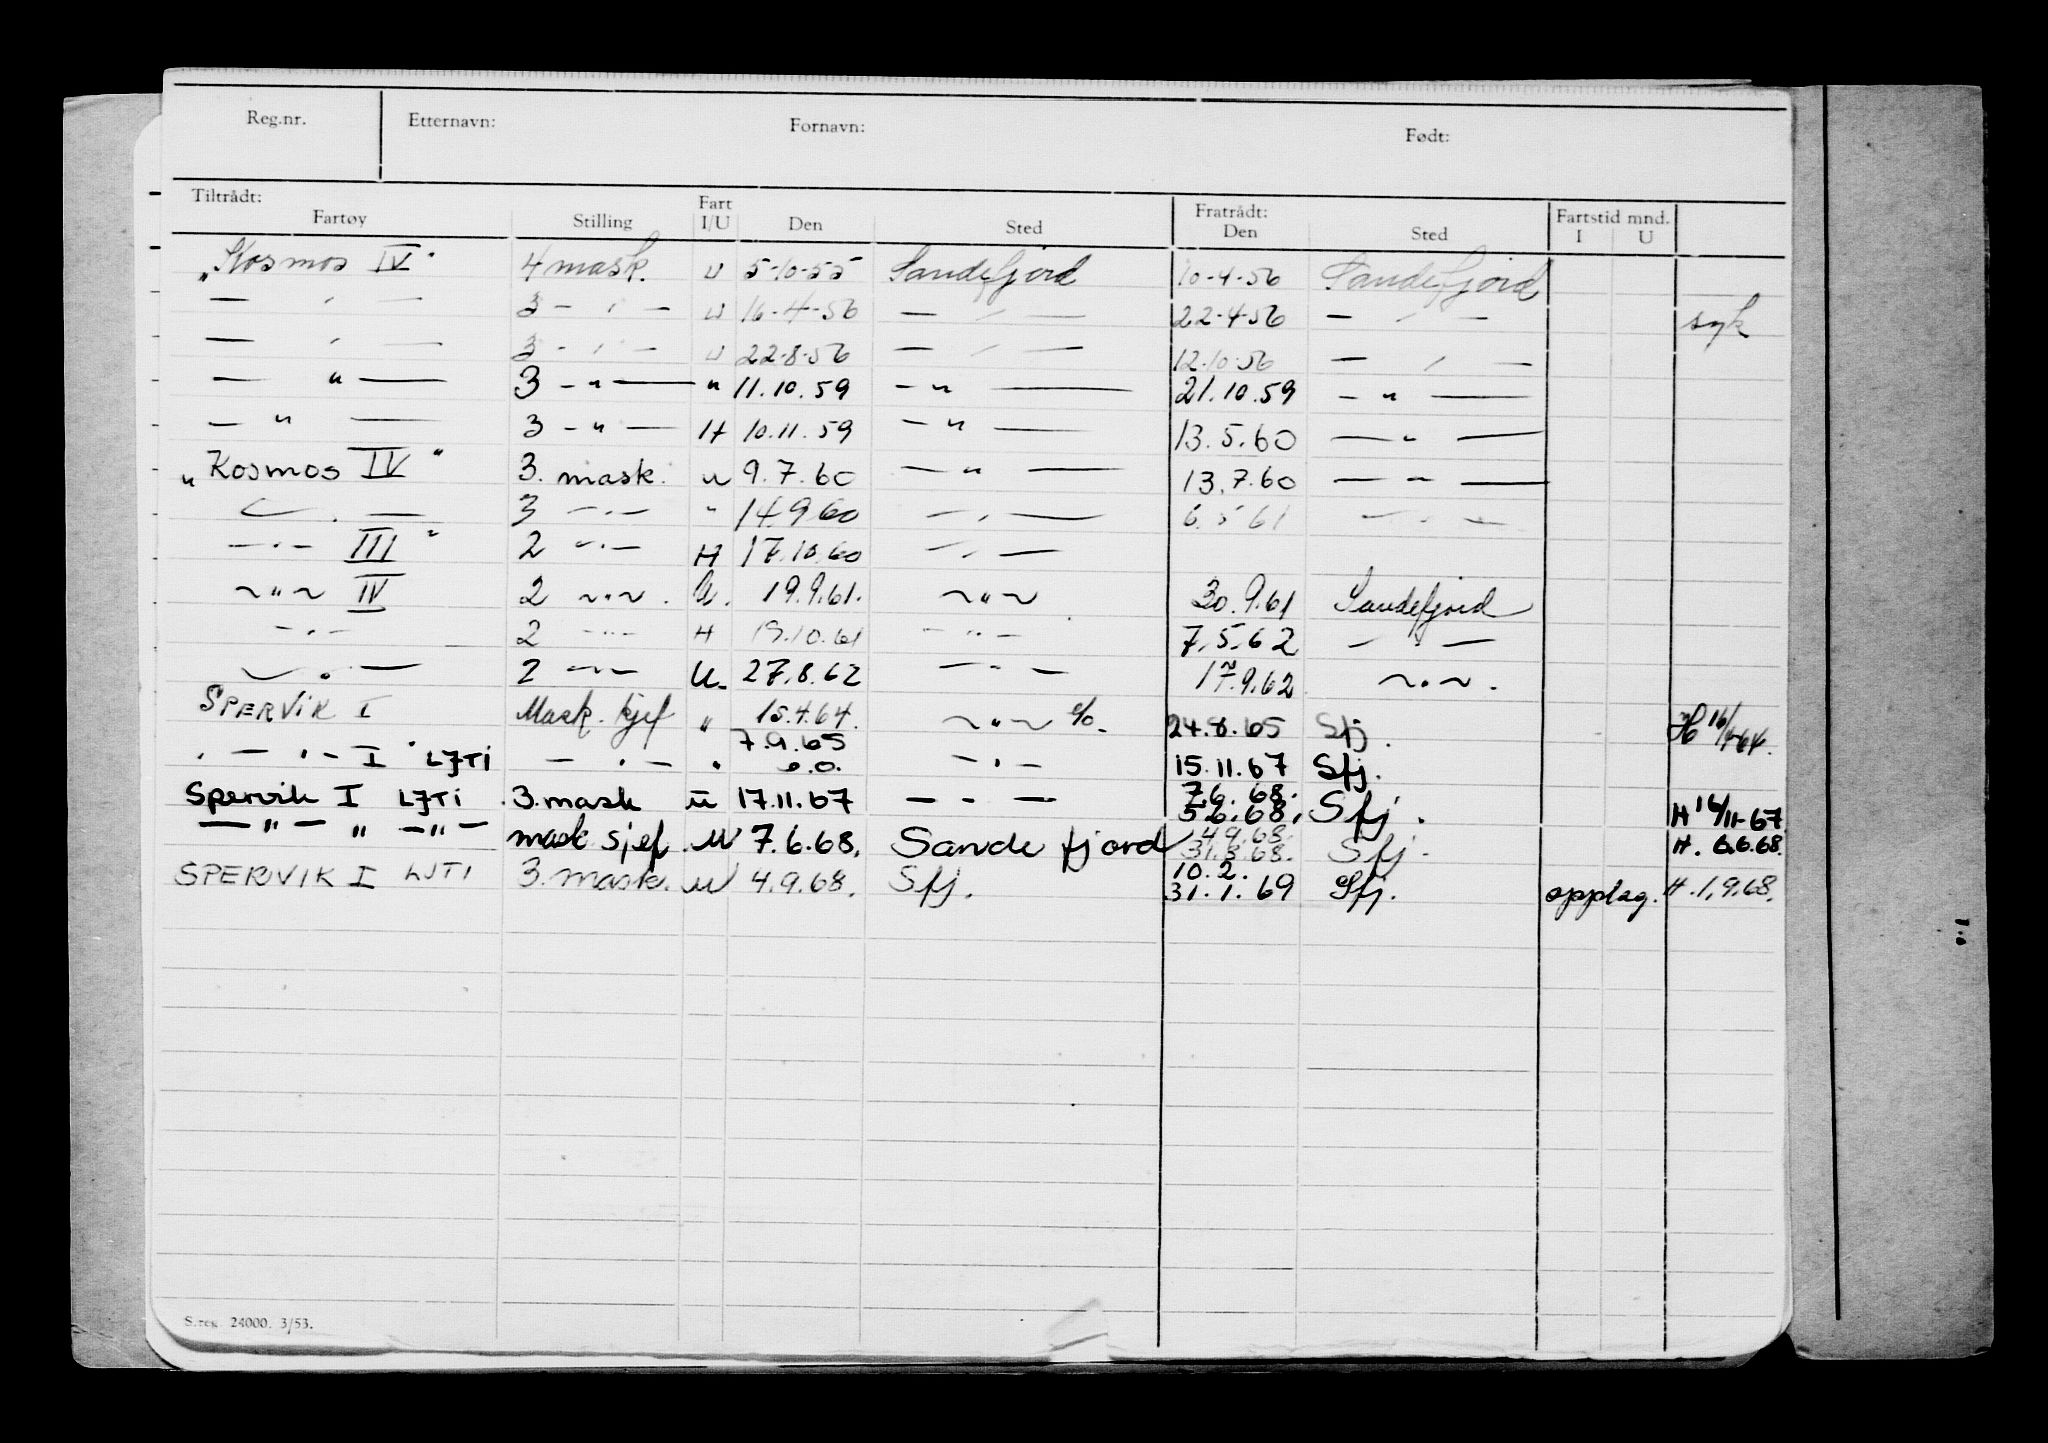 Reg.nr. Etternavn: Fornavn: Født:
Tiltrådt: Fart Fratrådt: Fartstid mnd.
Fartøy Stilling I/U Den Sted Den Sted I U
„Kosmos IV" 4 mask. U 5-10-55 Sandefjord 10-4-56 Sandefjord
— " — 3 — " — U 16-4-56 — " — 22-4-56 — " — syk
— " — 3 — " — U 22-8-56 — " — 12-10-56 — " —
— " — 3 — " — " 11.10.59 — " — 21.10.59 — " —
— " — 3 — " — H 10.11.59 — " — 13.5.60 — " —
„Kosmos IV" 3. mask. U 9.7.60 — " — 13.7.60 — " —
— " — 3 — " — " 14.9.60 — " — 6.5.61 — " —
— " — III " 2 — " — H 17.10.60 — " —
— " — IV 2 — " — . U. 19.9.61. — " — 30.9.61 Sandefjord
— " — 2 — " — H 19.10.61 — " — 7.5.62 — " —
— " — 2 — " — U. 27.8.62 — " — 17.9.62 — " — .
SPERVIK I Mask. kjef " 15.4.64. — " — %. 24.8.65 Sfj. H 16/4-64.
" — " — I " LJTI — " — " 7.9.65 o.o. — " — 15.11.67 Sfj.
Spervik I LJTI 3. mask U 17.11.67 — " — 7.6.68. 5.6.68. Sfj. H 16/11-67
— " — " — " — mask sjef U 7.6.68. Sandefjord 4.9.68. 31.8.68. Sfj. H. 6.6.68.
SPERVIK I LJTI 3. mask. U 4.9.68. Sfj. 10.2. 31.1.69 Sfj. opplag. H. 1.9.68.
S.reg. 24000. 3/53.